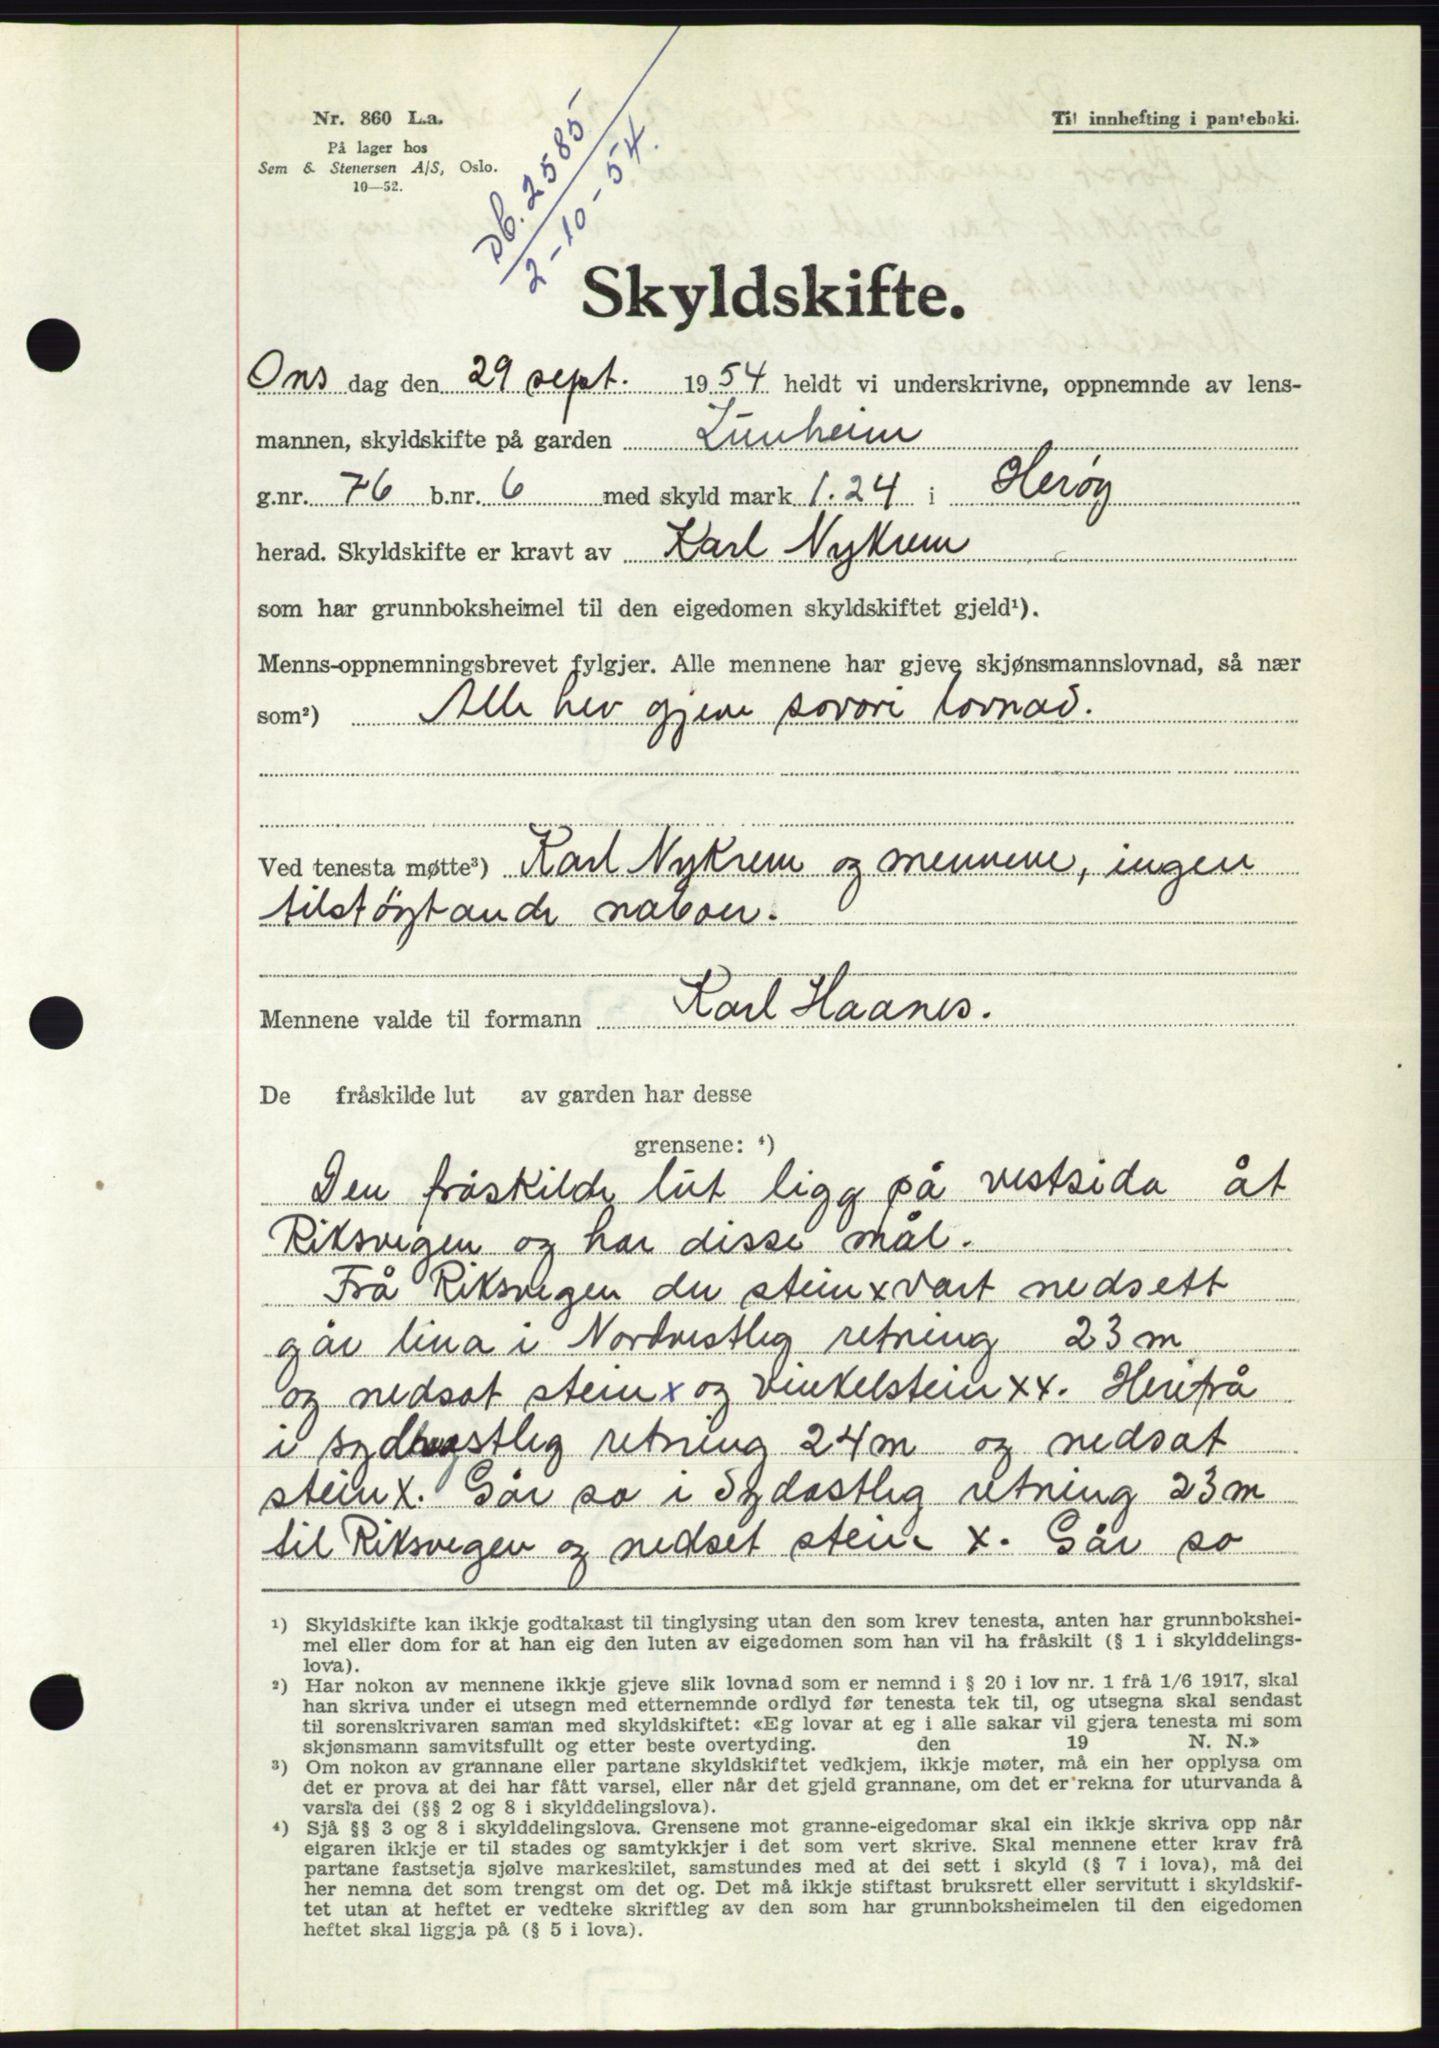 Nr. 860 L.a.
På lager hos
Sem & Stenersen A/S, Oslo.
10—52.
Db. 2585
2-10-54.
Til innhefting i panteboki.
Skyldskifte.
Ons dag den 29 sept. 1954 heldt vi underskrivne, oppnemnde av lens-
mannen, skyldskifte på garden Lunheim
g.nr. 76 b.nr. 6 med skyld mark 1.24 i Herøy
herad. Skyldskifte er kravt av Karl Nykrem
som har grunnboksheimel til den eigedomen skyldskiftet gjeld¹).
Menns-oppnemningsbrevet fylgjer. Alle mennene har gjeve skjønsmannslovnad, så nær
som²) Alle hev gjeve sovori lovnad.
Ved tenesta møtte³) Karl Nykrem og mennene, ingen
tilstøytande naboer.
Mennene valde til formann Karl Haanes.
De fråskilde lut av garden har desse
grensene: ⁴)
Den fråskilde lut ligg på vestsida åt
Riksvegen og har disse mål.
Frå Riksvegen der stein x vart nedsett
går lina i Nordvestleg retning 23 m
og nedsat stein x og vinkelstein xx. Herifrå
i sydvestleg retning 24 m og nedsat
stein x. Går so i Sydastleg retning 23 m
til Riksvegen og nedset stein x. Går so
¹) Skyldskifte kan ikkje godtakast til tinglysing utan den som krev tenesta, anten har grunnbokshei-
mel eller dom for at han eig den luten av eigedomen som han vil ha fråskilt (§ 1 i skylddelings-
lova).
²) Har nokon av mennene ikkje gjeve slik lovnad som er nemnd i § 20 i lov nr. 1 frå 1/6 1917, skal
han skriva under ei utsegn med etternemnde ordlyd før tenesta tek til, og utsegna skal sendast
til sorenskrivaren saman med skyldskiftet: «Eg lovar at eg i alle sakar vil gjera tenesta mi som
skjønsmann samvitsfullt og etter beste overtyding. den 19 N. N.»
³) Om nokon av grannane eller partane skyldskiftet vedkjem, ikkje møter, må ein her opplysa om
det er prova at dei har fått varsel, eller når det gjeld grannane, om det er rekna for uturvanda å
varsla dei (§§ 2 og 8 i skylddelingslova).
⁴) Sjå §§ 3 og 8 i skylddelingslova. Grensene mot granne-eigedomar skal ein ikkje skriva opp når
eigaren ikkje er til stades og samtykkjer i det som vert skrive. Skal mennene etter krav frå
partane fastsetja sjølve markeskilet, samstundes med at dei sett i skyld (§ 7 i lova), må dei
her nemna det som trengst om det og. Det må ikkje stiftast bruksrett eller servitutt i skyldskif-
tet utan at heftet er vedteke skriftleg av den som har grunnboksheimelen til den eigedomen
heftet skal liggja på (§ 5 i lova).